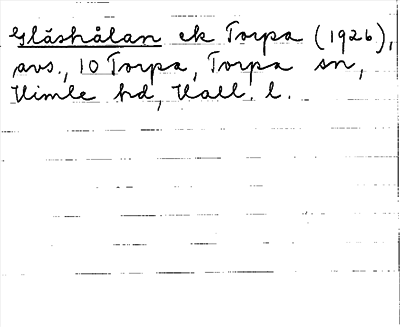 Glåshålan ek Torpa (1926),
avs., 10 Torpa, Torpa sn,
Himle hd, Hall. l.